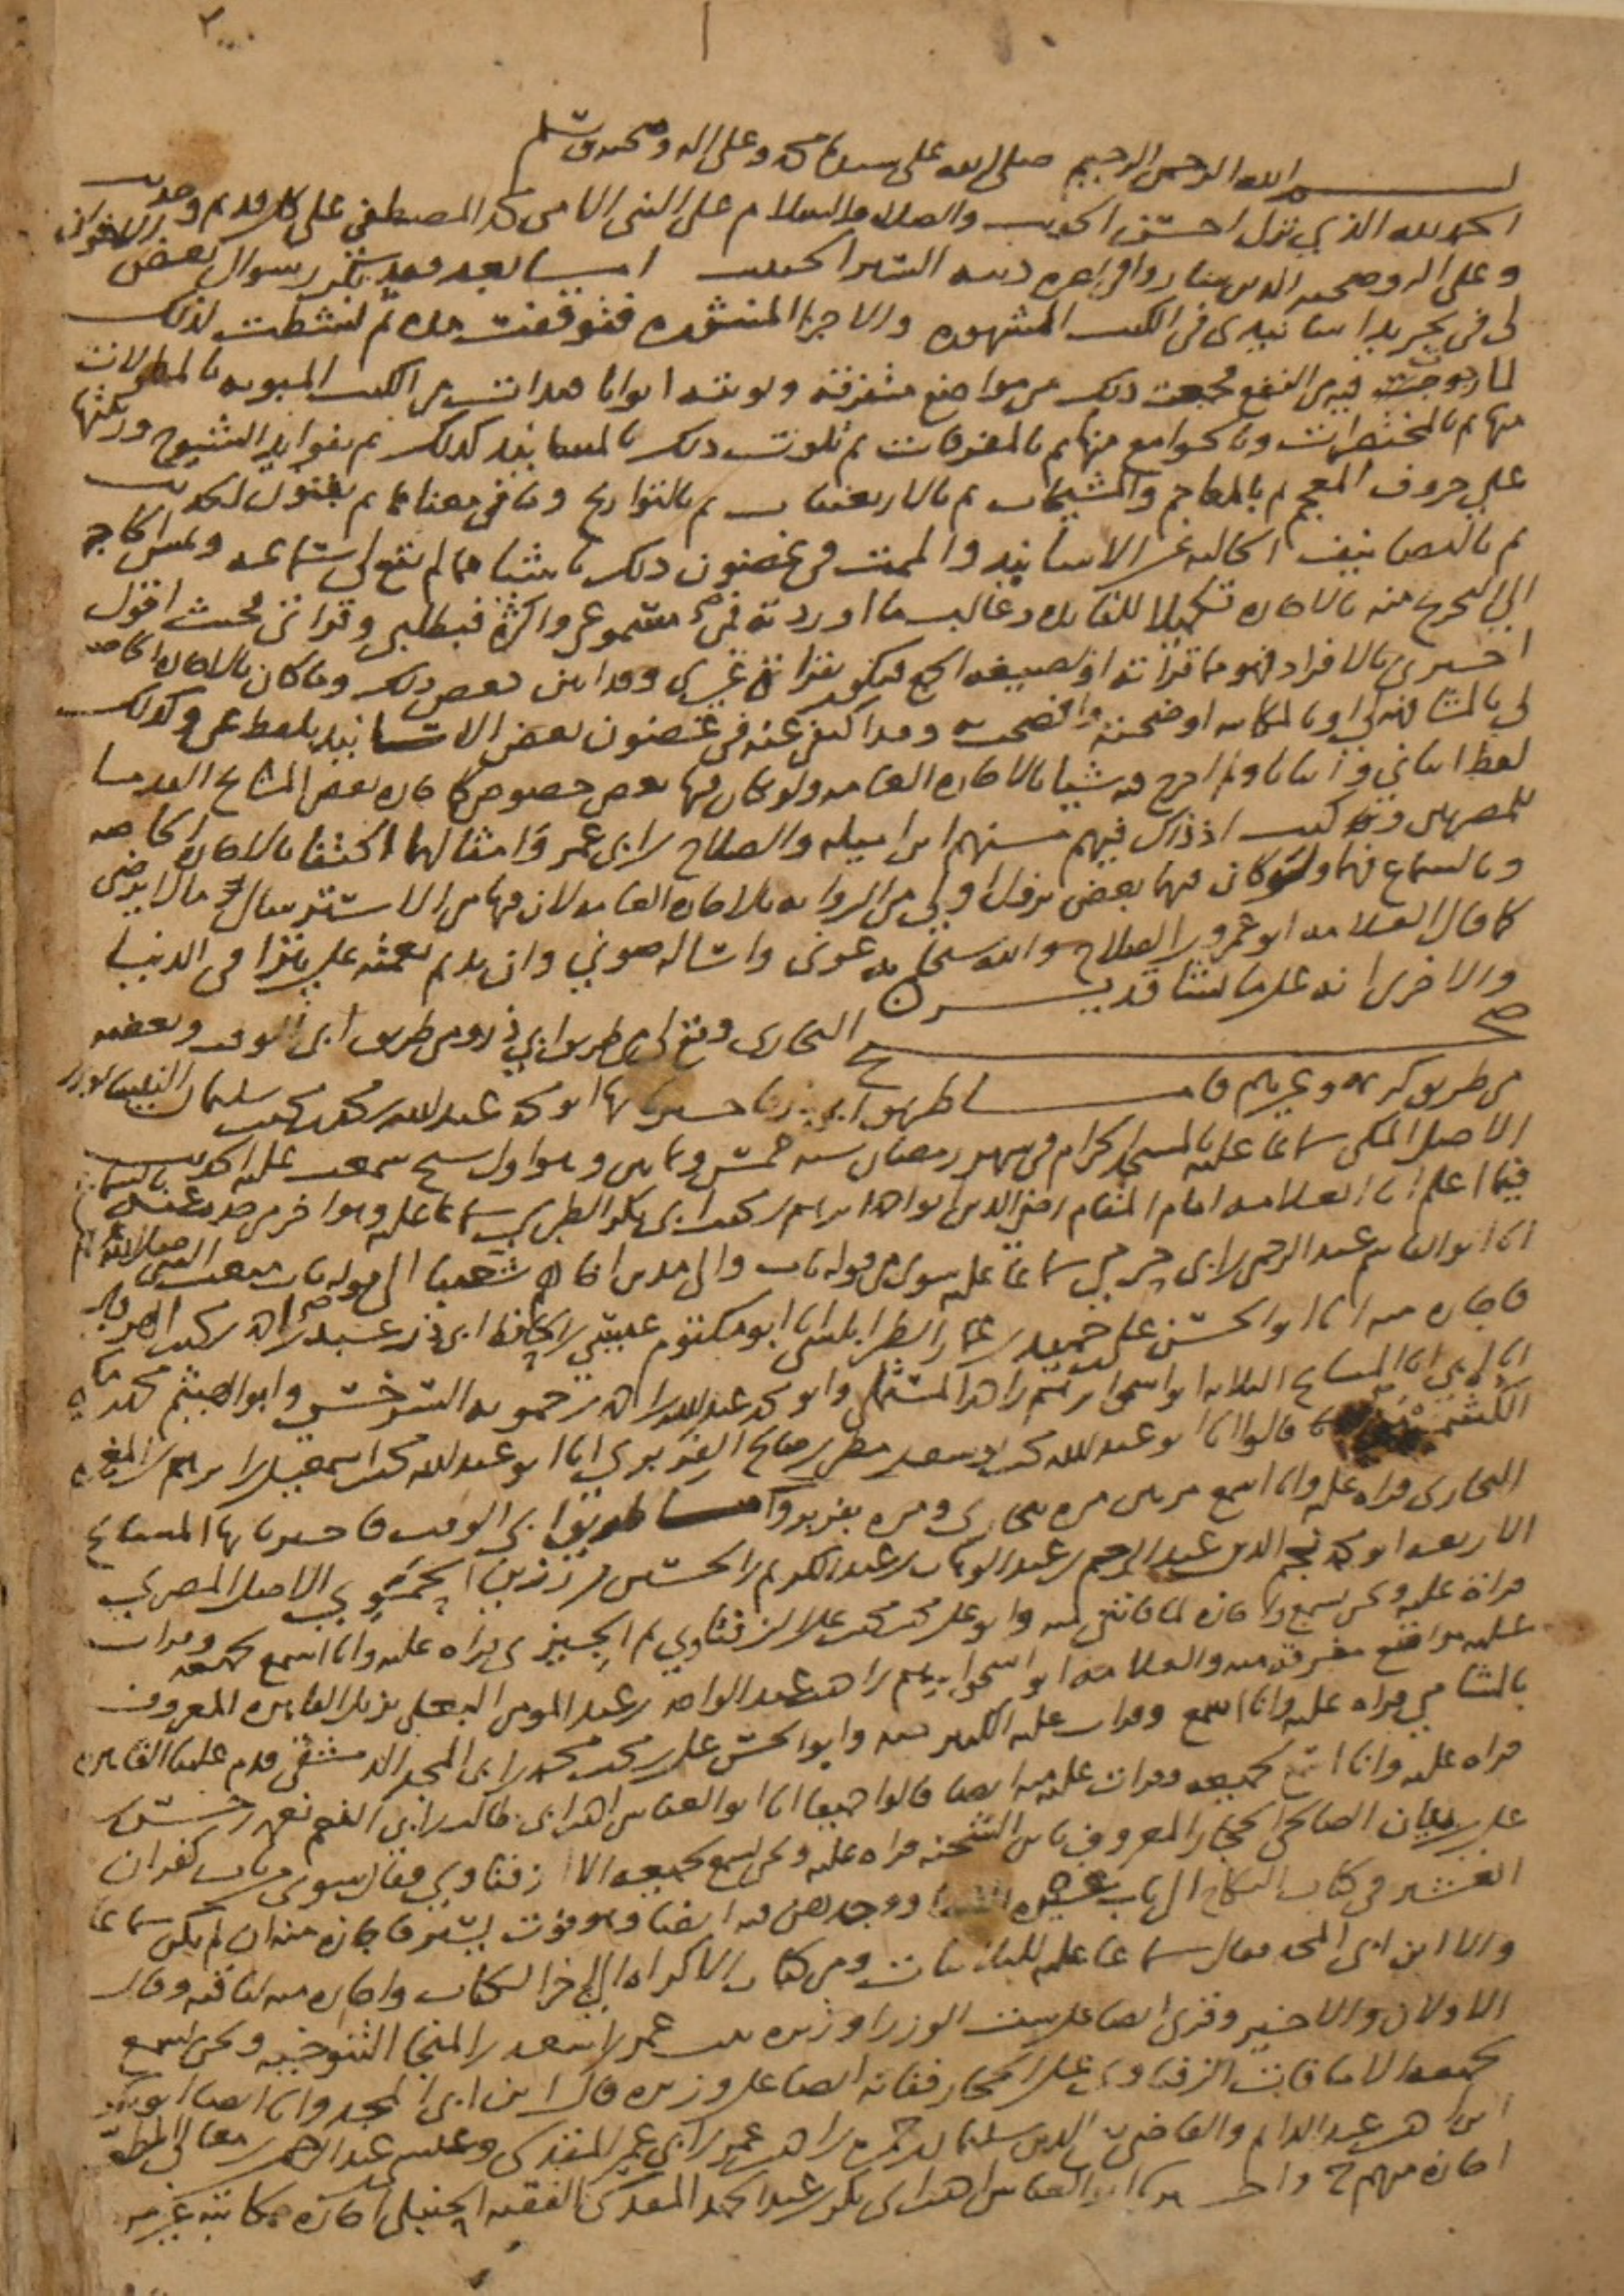 بسم الله الرحمن الرحيم صلى الله على سيدنا محمد وعلى اله وصحبه وسلم
الحمد لله الذي نزل احسن الحديث والصلاة والسلام على النبي الامي محمد المصطفى على كل قديم وحديث
وعلى اله وصحبه الذين ساروا في اعزه دينه السير الحثيث اما بعد فقد تكرر سوال بعض الاخوان
لي في تجريد اسانيدي في الكتب المشهوره والاجزا المنثوره فتوقفت مده ثم نشطت لذلك
لما رجوت فيه من النفع فجمعت ذلك من مواضع متفرقة وبوبته ابوابا فبدات من الكتب المبوبه بالمطولات
منها ثم بالمختصرات وبالجوامع منها ثم بالمفردات ثم تلوت ذلك بالمسانيد كذلك ثم بفوايد الشيوخ ورتبتها
على حروف المعجم ثم بالمعاجم والمشيخات ثم بالاربعينيات ثم بالتواريخ وما في معناها ثم بفنون الحديث
ثم بالتصانيف الخاليه عن الاسانيد والممت في غضون ذلك باشيا مما لم يقع لي سماعه ومس الحاجه
الى التخريج منه بالاجازه تكميلا للفايده وغالب ما اوردته فمن مسموعي واكثره فبطلبي وقراتي فحيث اقول
اخبرني بالافراد فهو مما قراته او بصيغه الجمع فيكون بقراءة غيري وقد ابين بعض ذلك وما كان بالاجازه الخاصه
لي بالمشافهه لي او بالمكاتبه اوضحته وافصحت به وقد اكتفي عنه في غضون بعض الاسانيد بلفظ عن وكذلك
لفظ انباني وانبانا ولم اخرج فيه شيا بالاجازه العامه ولو كان فيها بعض خصوص كاجازه بعض المشايخ القدما
للمصريين وقد كنت اذ ذاك فيهم منهم ابن اميله والصلاح بن ابي عمر وامثالهما اكتفا بالاجازه الخاصه
وبالسماع فيهما ولو كان فيهما بعض نزول اولى من الروايه بالاجازه العامه لان فيها من الاسترسال ما لا يرضى
كما قال العلامه ابو عمرو بن الصلاح والله سبحانه عوني واساله صوني وان يديم نعمته علي تترا في الدنيا
والاخرى انه على ما يشا قدير
صحيح البخاري وقع لي من طريق ابي ذر ومن طريق ابي الوقت وبعضه
من طريق كريمه وغيرهم فاما طريق ابي ذر فاخبرنا بها ابو محمد عبد الله بن محمد بن محمد بن سليمان النيسابوري
الاصل المكي سماعا عليه بالمسجد الحرام في شهر رمضان سنه خمس وثمانين وهو اول شيخ سمعت عليه الحديث
فيما اعلم انا العلامه امام المقام رضي الدين ابو احمد ابراهيم بن محمد بن ابي بكر الطبري سماعا عليه وهو اخر من حدث عنه بالسماع
انا ابو القاسم عبد الرحمن بن ابي حرمي سماعا عليه سوى من قوله باب والى مدين اخاهم شعيبا الى قوله باب مبعث النبي صلى الله عليه وسلم
فاجازه منه انا ابو الحسن علي بن حميد بن عمار الطرابلسي انا ابو مكتوم عيسى بن الحافظ ابي ذر عبد بن احمد بن محمد الهروي
انا ابي انا المشايخ الثلاثه ابو اسحق ابراهيم بن احمد المستملي وابو محمد عبد الله بن احمد بن حمويه السرخسي وابو الهيثم محمد بن مكي
الكشميهني قالوا انا ابو عبد الله محمد بن يوسف بن مطر بن صالح الفربري انا ابو عبد الله محمد بن اسمعيل بن ابراهيم بن المغيره
البخاري قراه عليه وانا اسمع مرتين مره ببخارى ومره بفربر واما طريق ابي الوقت فاخبرنا بها المشايخ
الاربعه ابو محمد نجم الدين عبد الرحيم بن عبد الوهاب بن عبد الكريم بن الحسين بن رزين الحموي الاصل المصري
قراءة عليه ونحن نسمع واجازه لما فاتني منه وابو علي محمد بن محمد بن علي الزفتاوي ثم الجيزي قراه عليه وانا اسمع لجميعه وقرات
عليه مواضع مفرقه منه والعلامه ابو اسحق ابراهيم بن احمد بن عبد الواحد بن عبد المومن البعلي نزيل القاهره المعروف
بالشامي قراه عليه وانا اسمع وقرات عليه الكثير منه وابو الحسن علي بن محمد بن محمد بن ابي المجد الدمشقي قدم علينا القاهره
قراه عليه وانا اسمع لجميعه وقرات عليه منه ايضا قالوا جميعا انا ابو العباس احمد بن ابي طالب بن ابي النعم نعمه بن حسن بن
علي بن بيان الصالحي الحجار المعروف بابن الشحنه قراه عليه ونحن نسمع لجميعه الا الزفتاوي فقال سوى من باب كفران
العشير في كتاب النكاح الى باب غيره النسا ووجدهن فيه ايضا وهو فوت يسير فاجازه منه ان لم يكن سماعا
والا ابن ابي المجد فقال سماعا عليه للثلاثيات ومن كتاب الاكراه الى اخر الكتاب واجازه منه لباقيه وقال
الاولان والاخير وقرئ ايضا على ست الوزرا وزيره بنت عمر بن اسعد بن المنجا التنوخيه ونحن نسمع
لجميعه الا ما فات الزفتاوي على الحجار ففاته ايضا على وزيره قال ابن ابي المجد وانا ايضا ابو بكر
ابن احمد بن عبد الدايم والقاضي تقي الدين سليمان بن حمزه بن احمد بن عمر بن ابي عمر المقدسي وعيسى بن عبد الرحمن بن معالي المطعم
اجازه منهم ح واخبرنا ابو العباس احمد بن ابي بكر بن عبد الحميد المقدسي الفقيه الحنبلي اجازه مكاتبة غير مره